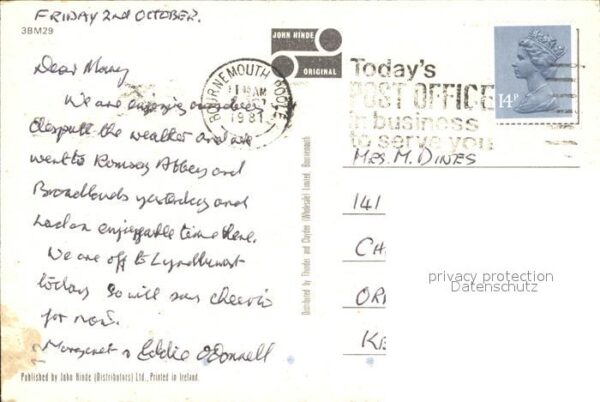 FRIDAY 2nd OCTOBER.
3BM29
JOHN HINDE
ORIGINAL
Dear Mary
We are enjoying ourselves
despite the weather and we
went to Romsey Abbey and
Broadlands yesterday and
had an enjoyable time there.
We are off to Lyndhurst
today so will say cheerio
for now.
Margaret & Eddie O'Donnell
Published by John Hinde (Distributors) Ltd., Printed in Ireland.
Distributed by Thunder and Clayden (Wholesale) Limited, Bournemouth
BOURNEMOUTH POOLE
AM
1981
Today's
POST OFFICE
in business
to serve you
14P
MRS. M. DINES
141
CH
OR
KE
privacy protection
Datenschutz